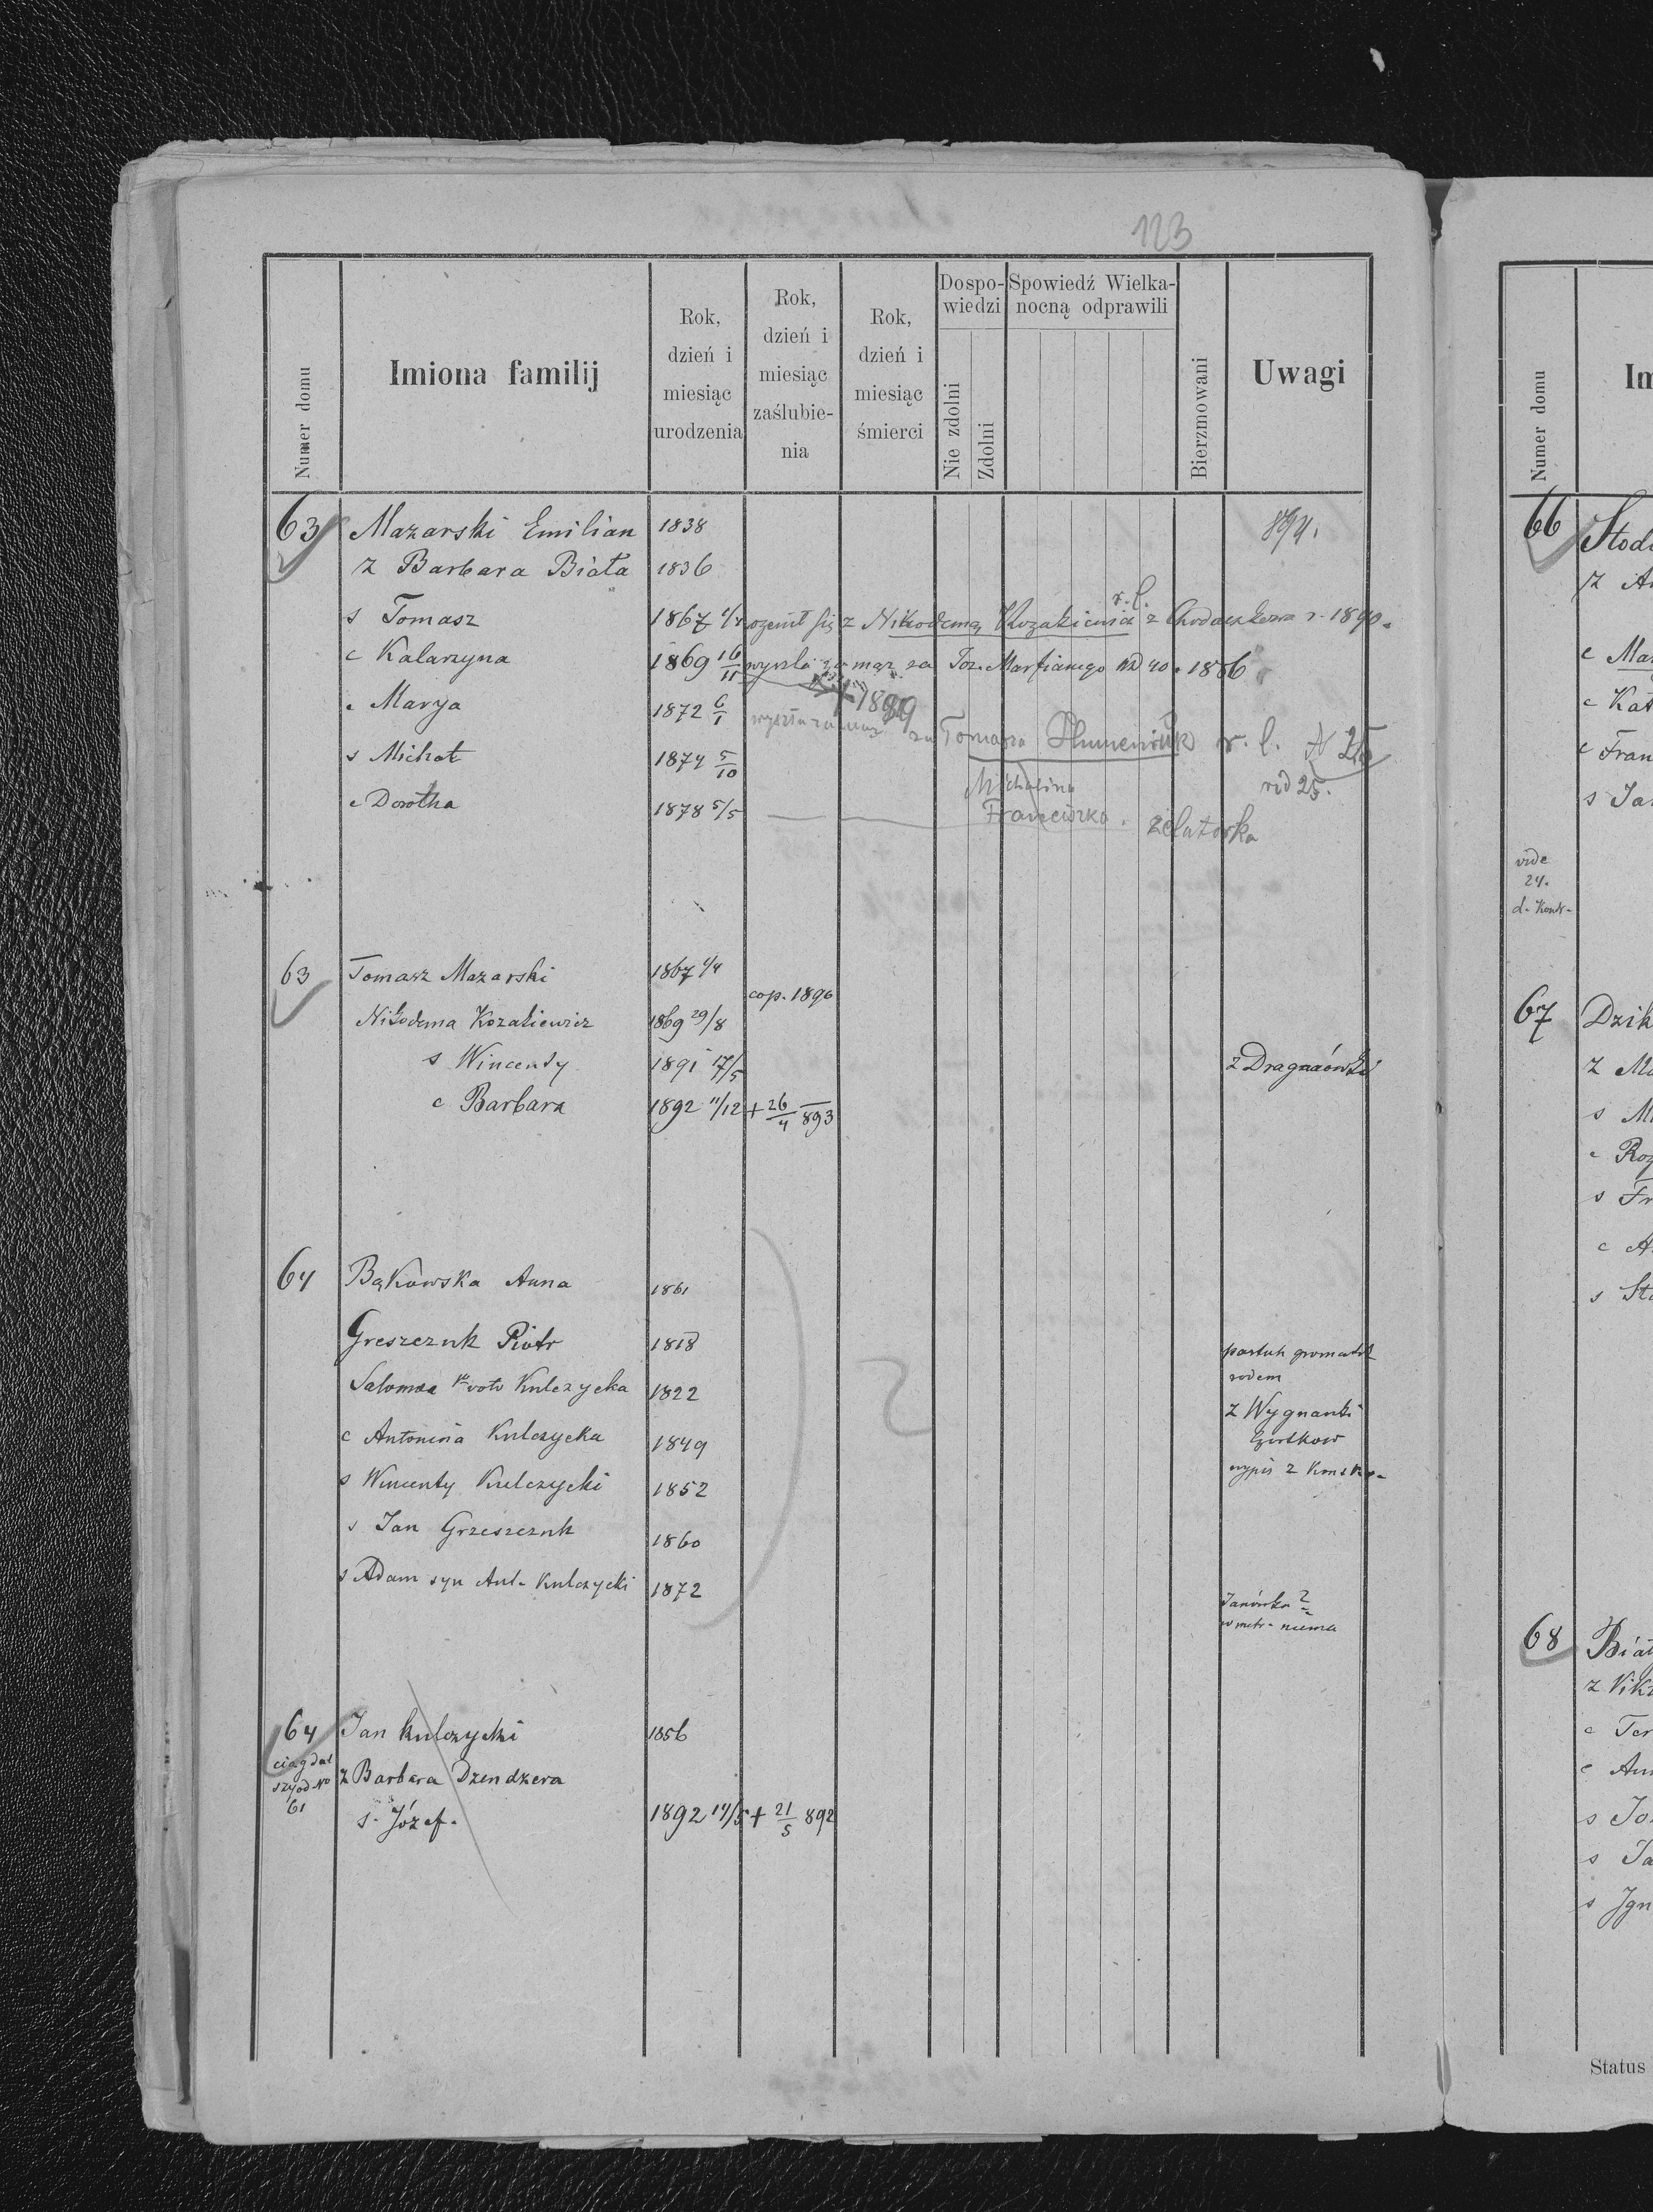 123
Numer domu
Imiona familij
Rok, dzień i miesiąc urodzenia
Rok, dzień i miesiąc zaślubie-nia
Rok, dzień i miesiąc śmierci
Dospo-wiedzi
Nie zdolni
Zdolni
Spowiedź Wielka-nocną odprawili
Bierzmowani
Uwagi
63 Mazarski Emilian 1838 894.
z Barbara Biała 1836
s Tomasz 1867 ożenił się z Nikodemą Kozakiewicz r. l. z Chodaczkowa r. 1890.
c Katarzyna 1869 16/11 wyszła za mąż za Joz. Marfianego nd 40. 1886
c Marya 1872 6/1 1899
wyszła za mąż za Tomasza r. l. N 25
s Michał 1874 5/10 Michalina vid 25.
c Dorotha 1878 5/5 Franciszka. zelatorka
63 Tomasz Mazarski 1867
cop. 1890
Nikodema Kozakiewicz 1869 29/8
s Wincenty 1891 17/5 z
c Barbara 1892 11/12 + 26/4 893
64 Bąkowska Anna 1861
Greszczuk Piotr 1818 pastuh
rodem
Salomea voto Kulczycka 1822
z Wygnanki
c Antonina Kulczycka 1849
s Wincenty Kulczycki 1852 wypis z
s Jan Grzeszczuk 1860
s Adam syn Ant. Kulczycki 1872
Janówka?
w metr. niema
5
64 Jan Kulczycki 1856
ciąg dalszy od No 61
z Barbara Dzendzera
s. Józef. 1892 14/5 + 21/5 892
Numer domu
Im
66 Stod
z A
c Mar
c Kat
c Fran
s Jan
vide
24.
67 Dzik
z Ma
s Mi
c Roz
s Fr
c A
s Sta
68 Biał
z Vikt
c Ter
c Ann
s Jo
s Ja
s Ign
Status